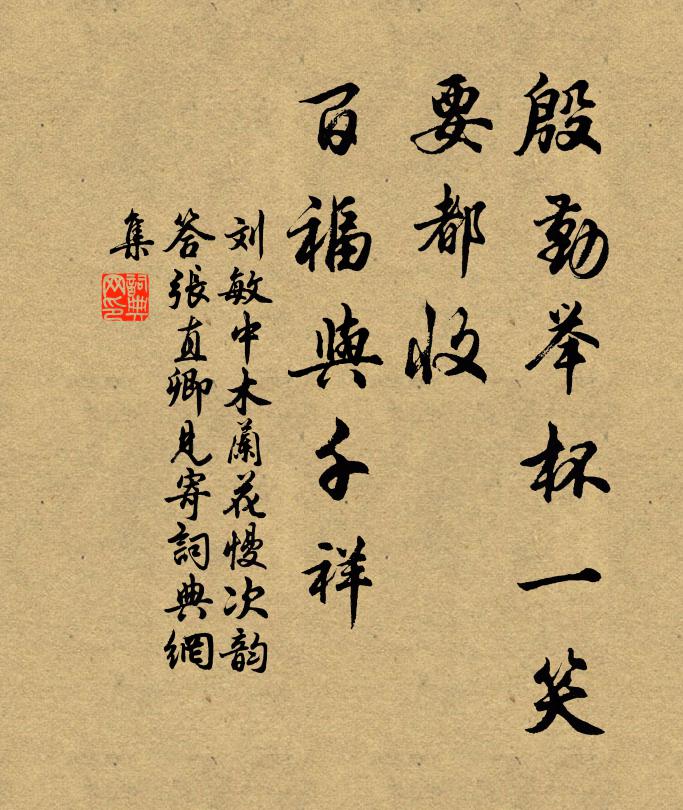 殷勤举杯一笑
要都收
百福與千祥
刘敏中木蘭花慢次韵
答張直卿見寄詞典網
集
詞典
网印